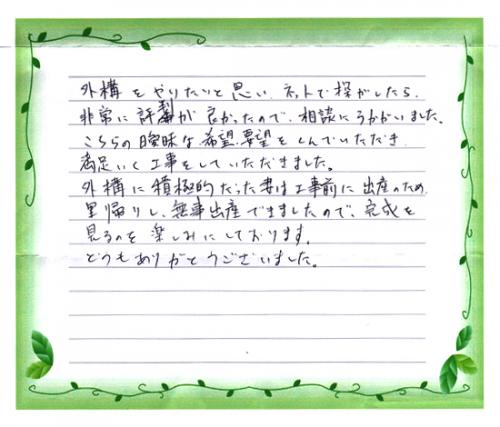 外構をやりたいと思い、ネットで探がしたら、
非常に評判が良かったので、相談にうかがいました。
こちらの曖昧な希望、要望をくんでいただき
満足いく工事をしていただきました。
外構に積極的だった妻は工事前に出産のため
里帰りし、無事出産できましたので、完成を
見るのを楽しみにしております。
どうもありがとうございました。